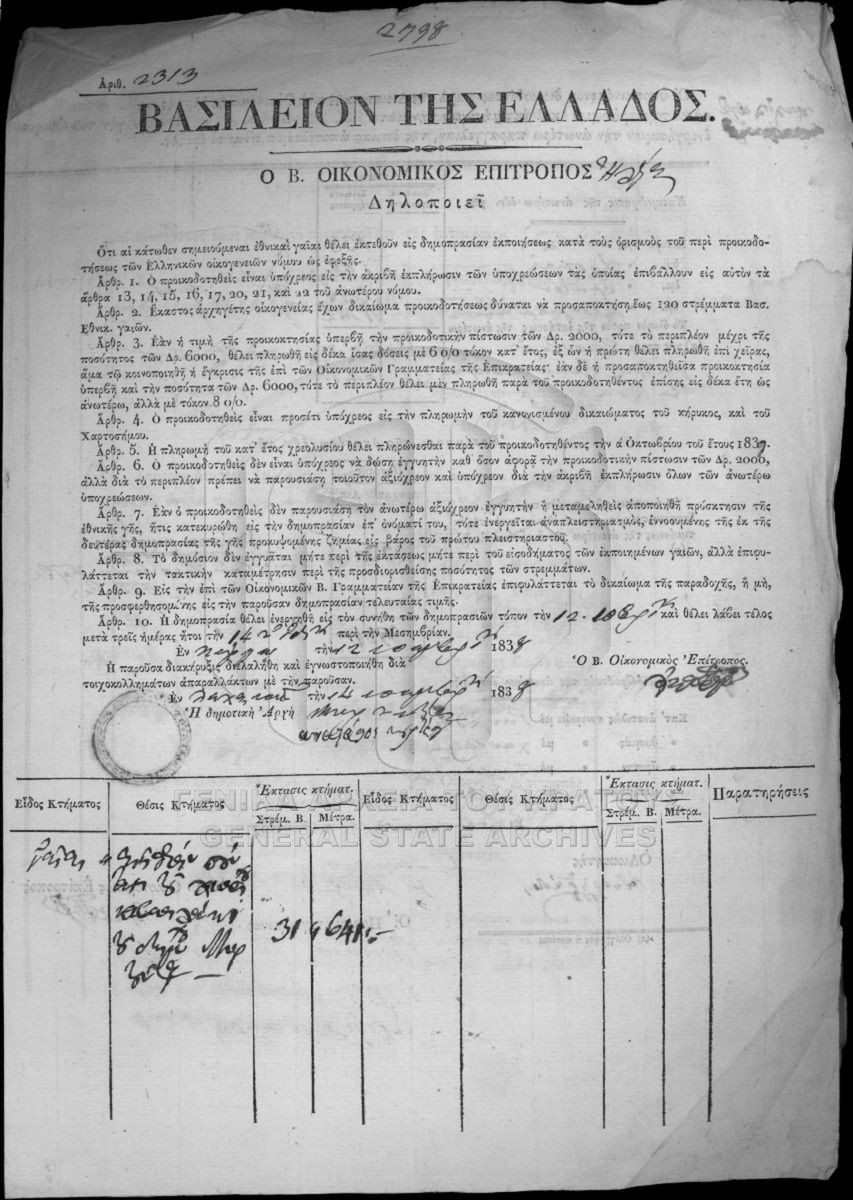 2798
Ἀριθ. 2313
ΒΑΣΙΛΕΙΟΝ ΤΗΣ ΕΛΛΑΔΟΣ.
Ο Β. ΟΙΚΟΝΟΜΙΚΟΣ ΕΠΙΤΡΟΠΟΣ
Δηλοποιεῖ
Ὅτι αἱ κάτωθεν σημειούμεναι ἐθνικαὶ γαῖαι θέλει ἐκτεθοῦν εἰς δημοπρασίαν ἐκποιήσεως κατὰ τοὺς ὁρισμοὺς τοῦ περὶ προικοδο-
τήσεως τῶν Ἑλληνικῶν οἰκογενειῶν νόμου ὡς ἐφεξῆς.
Ἄρθρ. 1. Ὁ προικοδοτηθεὶς εἶναι ὑπόχρεος εἰς τὴν ἀκριβῆ ἐκπλήρωσιν τῶν ὑποχρεώσεων τὰς ὁποίας ἐπιβάλλουν εἰς αὐτὸν τὰ
ἄρθρα 13, 14, 15, 16, 17, 20, 21, καὶ 22 τοῦ ἀνωτέρω νόμου.
Ἄρθρ. 2. Ἕκαστος ἀρχηγέτης οἰκογενείας ἔχων δικαίωμα προικοδοτήσεως δύναται νὰ προσαποκτήσῃ ἕως 120 στρέμματα Βασ.
Ἐθνικ. γαιῶν.
Ἄρθρ. 3. Ἐὰν ἡ τιμὴ τῆς προικοκτησίας ὑπερβῇ τὴν προικοδοτικὴν πίστωσιν τῶν Δρ. 2000, τότε τὸ περιπλέον μέχρι τῆς
ποσότητος τῶν Δρ. 6000, θέλει πληρωθῆ εἰς δέκα ἴσας δόσεις μὲ 6 0/0 τόκον κατ' ἔτος, ἐξ ὧν ἡ πρώτη θέλει πληρωθῆ ἐπὶ χεῖρας,
ἅμα τῷ κοινοποιηθῇ ἡ ἔγκρισις τῆς ἐπὶ τῶν Οἰκονομικῶν Γραμματείας τῆς Ἐπικρατείας· ἐὰν δὲ ἡ προσαποκτηθεῖσα προικοκτησία
ὑπερβῇ καὶ τὴν ποσότητα τῶν Δρ. 6000, τότε τὸ περιπλέον θέλει μὲν πληρωθῆ παρὰ τοῦ προικοδοτηθέντος ἐπίσης εἰς δέκα ἔτη ὡς
ἀνωτέρω, ἀλλὰ μὲ τόκον 8 0/0.
Ἄρθρ. 4. Ὁ προικοδοτηθεὶς εἶναι προσέτι ὑπόχρεος εἰς τὴν πληρωμὴν τοῦ κανονισμένου δικαιώματος τοῦ κήρυκος, καὶ τοῦ
Χαρτοσήμου.
Ἄρθρ. 5. Ἡ πληρωμὴ τοῦ κατ' ἔτος χρεολυσίου θέλει πληρώνεσθαι παρὰ τοῦ προικοδοτηθέντος τὴν ά Ὀκτωβρίου τοῦ ἔτους 1839.
Ἄρθρ. 6. Ὁ προικοδοτηθεὶς δὲν εἶναι ὑπόχρεος νὰ δώσῃ ἐγγυητὴν καθ' ὅσον ἀφορᾷ τὴν προικοδοτικὴν πίστωσιν τῶν Δρ. 2000,
ἀλλὰ διὰ τὸ περιπλέον πρέπει νὰ παρουσιάσῃ τοιοῦτον ἀξιόχρεον καὶ ὑπόχρεον διὰ τὴν ἀκριβῆ ἐκπλήρωσιν ὅλων τῶν ἀνωτέρω
ὑποχρεώσεων.
Ἄρθρ. 7. Ἐὰν ὁ προικοδοτηθεὶς δὲν παρουσιάσῃ τὸν ἀνωτέρω ἀξιόχρεον ἐγγυητὴν ἢ μεταμεληθεὶς ἀποποιηθῇ πρόσκτησιν τῆς
ἐθνικῆς γῆς, ἥτις κατεκυρώθη εἰς τὴν δημοπρασίαν ἐπ' ὀνόματί του, τότε ἐνεργεῖται ἀναπλειστηριασμὸς, ἐννοουμένης τῆς ἐκ τῆς
δευτέρας δημοπρασίας τῆς γῆς προκυψομένης ζημίας εἰς βάρος τοῦ πρώτου πλειστηριαστοῦ.
Ἄρθρ. 8. Τὸ δημόσιον δὲν ἐγγυᾶται μήτε περὶ τῆς ἐκτάσεως μήτε περὶ τοῦ εἰσοδήματος τῶν ἐκποιημένων γαιῶν, ἀλλὰ ἐπιφυ-
λάττεται τὴν τακτικὴν καταμέτρησιν περὶ τῆς προσδιορισθείσης ποσότητος τῶν στρεμμάτων.
Ἄρθρ. 9. Εἰς τὴν ἐπὶ τῶν Οἰκονομικῶν Β. Γραμματείαν τῆς Ἐπικρατείας ἐπιφυλάττεται τὸ δικαίωμα τῆς παραδοχῆς, ἢ μὴ,
τῆς προσφερθησομένης εἰς τὴν παροῦσαν δημοπρασίαν τελευταίας τιμῆς.
Ἄρθρ. 10. Ἡ δημοπρασία θέλει ἐνεργηθῆ εἰς τὸν συνήθη τῶν δημοπρασιῶν τόπον τὴν 12 καὶ θέλει λάβει τέλος
μετὰ τρεῖς ἡμέρας ἤτοι τὴν 14 περὶ τὴν Μεσημβρίαν.
Ἐν τὴν 12 1838
Ὁ Β. Οἰκονομικὸς Ἐπίτροπος.
Ἡ παροῦσα διακήρυξις διελαλήθη καὶ ἐγνωστοποιήθη διὰ
τοιχοκολλημάτων ἀπαραλλάκτων μὲ τὴν παροῦσαν.
Ἐν τὴν 12 1838
Ἡ δημοτικὴ Ἀρχὴ
Εἶδος Κτήματος Θέσις Κτήματος Ἔκτασις κτήματ. Εἶδος Κτήματος Θέσις Κτήματος Ἔκτασις κτήματ. Παρατηρήσεις
Στρέμ. Β. Μέτρα. Στρέμ. Β. Μέτρα.
31 641
ΓΕΝΙΚΑ ΑΡΧΕΙΑ ΤΟΥ ΚΡΑΤΟΥΣ
GENERAL STATE ARCHIVES